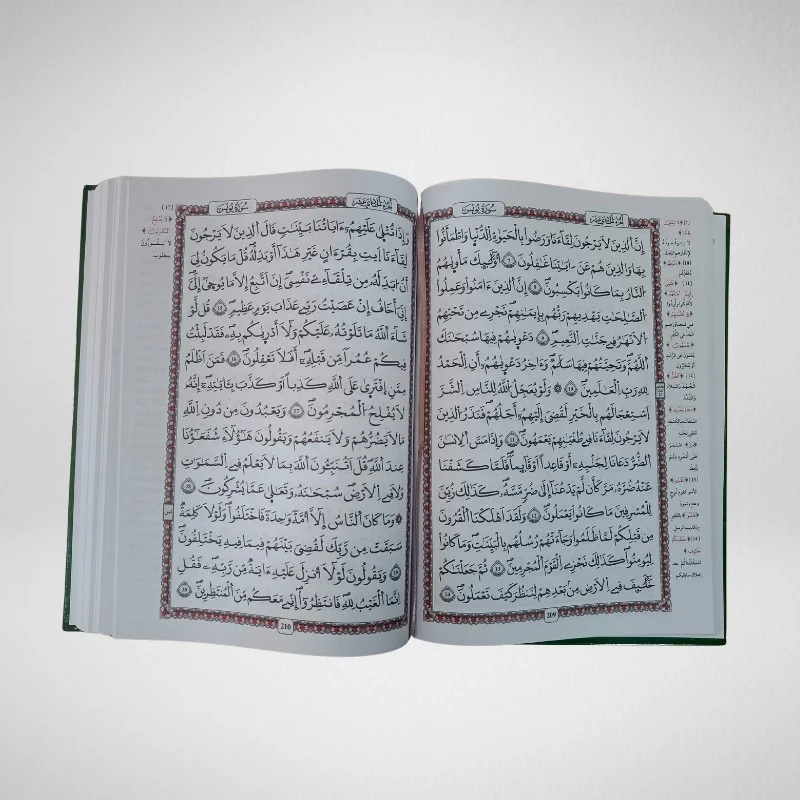 سورة يونس
الجزء الحادي عشر
إِنَّ الَّذِينَ لَا يَرْجُونَ لِقَاءَنَا وَرَضُوا بِالْحَيَوٰةِ الدُّنْيَا وَاطْمَأَنُّوا
بِهَا وَالَّذِينَ هُمْ عَنْ ءَايَٰتِنَا غَٰفِلُونَ ۝٧ أُوْلَٰئِكَ مَأْوَيٰهُمُ
النَّارُ بِمَا كَانُوا يَكْسِبُونَ ۝٨ إِنَّ الَّذِينَ ءَامَنُوا وَعَمِلُوا
الصَّٰلِحَٰتِ يَهْدِيهِمْ رَبُّهُم بِإِيمَٰنِهِمْ تَجْرِي مِن تَحْتِهِمُ
الْأَنْهَٰرُ فِي جَنَّٰتِ النَّعِيمِ ۝٩ دَعْوَيٰهُمْ فِيهَا سُبْحَٰنَكَ
اللَّهُمَّ وَتَحِيَّتُهُمْ فِيهَا سَلَٰمٌ وَءَاخِرُ دَعْوَيٰهُمُ أَنِ الْحَمْدُ
لِلهِ رَبِّ الْعَٰلَمِينَ ۝١٠ وَلَوْ يُعَجِّلُ اللَّهُ لِلنَّاسِ الشَّرَّ
اسْتِعْجَالَهُم بِالْخَيْرِ لَقُضِيَ إِلَيْهِمُ أَجَلُهُمْ فَنَذَرُ الَّذِينَ
لَا يَرْجُونَ لِقَاءَنَا فِي طُغْيَٰنِهِمْ يَعْمَهُونَ ۝١١ وَإِذَا مَسَّ الْإِنسَٰنَ
الضُّرُّ دَعَانَا لِجَنبِهِ أَوْ قَاعِداً أَوْ قَائِماً فَلَمَّا كَشَفْنَا
عَنْهُ ضُرَّهُ مَرَّ كَأَن لَّمْ يَدْعُنَا إِلَىٰ ضُرٍّ مَّسَّهُ كَذَٰلِكَ زُيِّنَ
لِلْمُسْرِفِينَ مَا كَانُوا يَعْمَلُونَ ۝١٢ وَلَقَدْ أَهْلَكْنَا الْقُرُونَ
مِن قَبْلِكُمْ لَمَّا ظَلَمُوا وَجَاءَتْهُمْ رُسُلُهُم بِالْبَيِّنَٰتِ وَمَا كَانُوا
لِيُومِنُوا كَذَٰلِكَ نَجْزِي الْقَوْمَ الْمُجْرِمِينَ ۝١٣ ثُمَّ جَعَلْنَٰكُمْ
خَلَٰئِفَ فِي الْأَرْضِ مِن بَعْدِهِمْ لِنَنظُرَ كَيْفَ تَعْمَلُونَ ۝١٤
209
سورة يونس
الجزء الحادي عشر
وَإِذَا تُتْلَىٰ عَلَيْهِمُ ءَايَاتُنَا بَيِّنَٰتٍ قَالَ الَّذِينَ لَا يَرْجُونَ
لِقَاءَنَا ائْتِ بِقُرْءَانٍ غَيْرِ هَٰذَا أَوْ بَدِّلْهُ قُلْ مَا يَكُونُ لِيَ
أَنُ ابَدِّلَهُ مِن تِلْقَاءِے نَفْسِيَ إِنَ اتَّبِعُ إِلَّا مَا يُوحَىٰ إِلَيَّ
إِنِّيَ أَخَافُ إِنْ عَصَيْتُ رَبِّي عَذَابَ يَوْمٍ عَظِيمٍ ۝١٥ قُل لَّوْ
شَاءَ اللَّهُ مَا تَلَوْتُهُ عَلَيْكُمْ وَلَا أَدْرَيٰكُم بِهِ فَقَدْ لَبِثْتُ
فِيكُمْ عُمُراً مِّن قَبْلِهِ أَفَلَا تَعْقِلُونَ ۝١٦ فَمَنَ اظْلَمُ
مِمَّنِ افْتَرَىٰ عَلَى اللَّهِ كَذِباً أَوْ كَذَّبَ بِـَٔايَٰتِهِ إِنَّهُ
لَا يُفْلِحُ الْمُجْرِمُونَ ۝١٧ وَيَعْبُدُونَ مِن دُونِ اللَّهِ
مَا لَا يَضُرُّهُمْ وَلَا يَنفَعُهُمْ وَيَقُولُونَ هَٰؤُلَاءِ شُفَعَٰؤُنَا
عِندَ اللَّهِ قُلَ اَتُنَبِّـُٔونَ اللَّهَ بِمَا لَا يَعْلَمُ فِي السَّمَٰوَٰتِ
وَلَا فِي الْأَرْضِ سُبْحَٰنَهُ وَتَعَٰلَىٰ عَمَّا يُشْرِكُونَ ۝١٨
۞ وَمَا كَانَ النَّاسُ إِلَّا أُمَّةً وَٰحِدَةً فَاخْتَلَفُوا وَلَوْلَا كَلِمَةٌ
سَبَقَتْ مِن رَّبِّكَ لَقُضِيَ بَيْنَهُمْ فِيمَا فِيهِ يَخْتَلِفُونَ
۝١٩ وَيَقُولُونَ لَوْلَا أُنزِلَ عَلَيْهِ ءَايَةٌ مِّن رَّبِّهِ فَقُلِ
إِنَّمَا الْغَيْبُ لِلهِ فَانتَظِرُوا إِنِّي مَعَكُم مِّنَ الْمُنتَظِرِينَ ۝٢٠
210